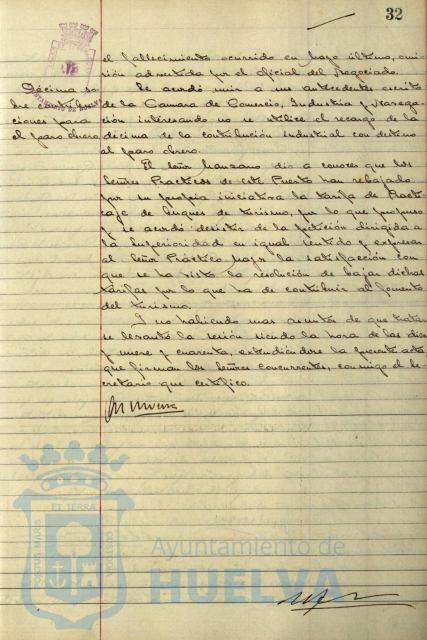 32
el fallecimiento ocurrido en Mayo último, omi-
sión advertida por el oficial del Negociado.
Décima so-
bre contribu-
ciones para
el paro obrero.
Se acordó unir a sus antecedentes escrito
de la Camara de Comercio, Industria y Navega-
ción interesando no se utilice el recargo de la
décima de la contribución industrial con destino
al paro obrero.
El Señor Manzano dio a conocer que los
Señores Practicos de este Puerto han rebajado
por su propia iniciativa la tarifa de Practi-
caje de buques de turismo, por lo que propuso
y se acordó desistir de la petición dirigida a
la Superioridad en igual sentido y expresar
al Señor Práctico Mayor la satisfacción con
que se ha visto la resolución de bajar dichas
tarifas por lo que ha de contribuir al fomento
del turismo.
Y no habiendo mas asuntos de que tratar
se levantó la sesión siendo la hora de las diez
y nueve y cuarenta, extendiendose la presente acta
que firman los Señores concurrentes, conmigo el Se-
cretario que certifico.
PORTUS MARIS
ET TERRÆ
CUSTODIA
Ayuntamiento de
HUELVA